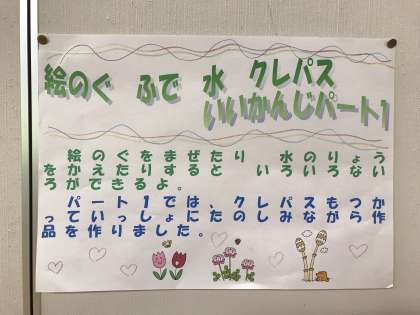 絵のぐ ふで 水 クレパス
いいかんじパート1
絵のぐをまぜたり 水のりょう
をかえたりすると いろいろない
ろができるよ。
パート1では、クレパスもつか
っていっしょにたのしみながら作
品を作りました。